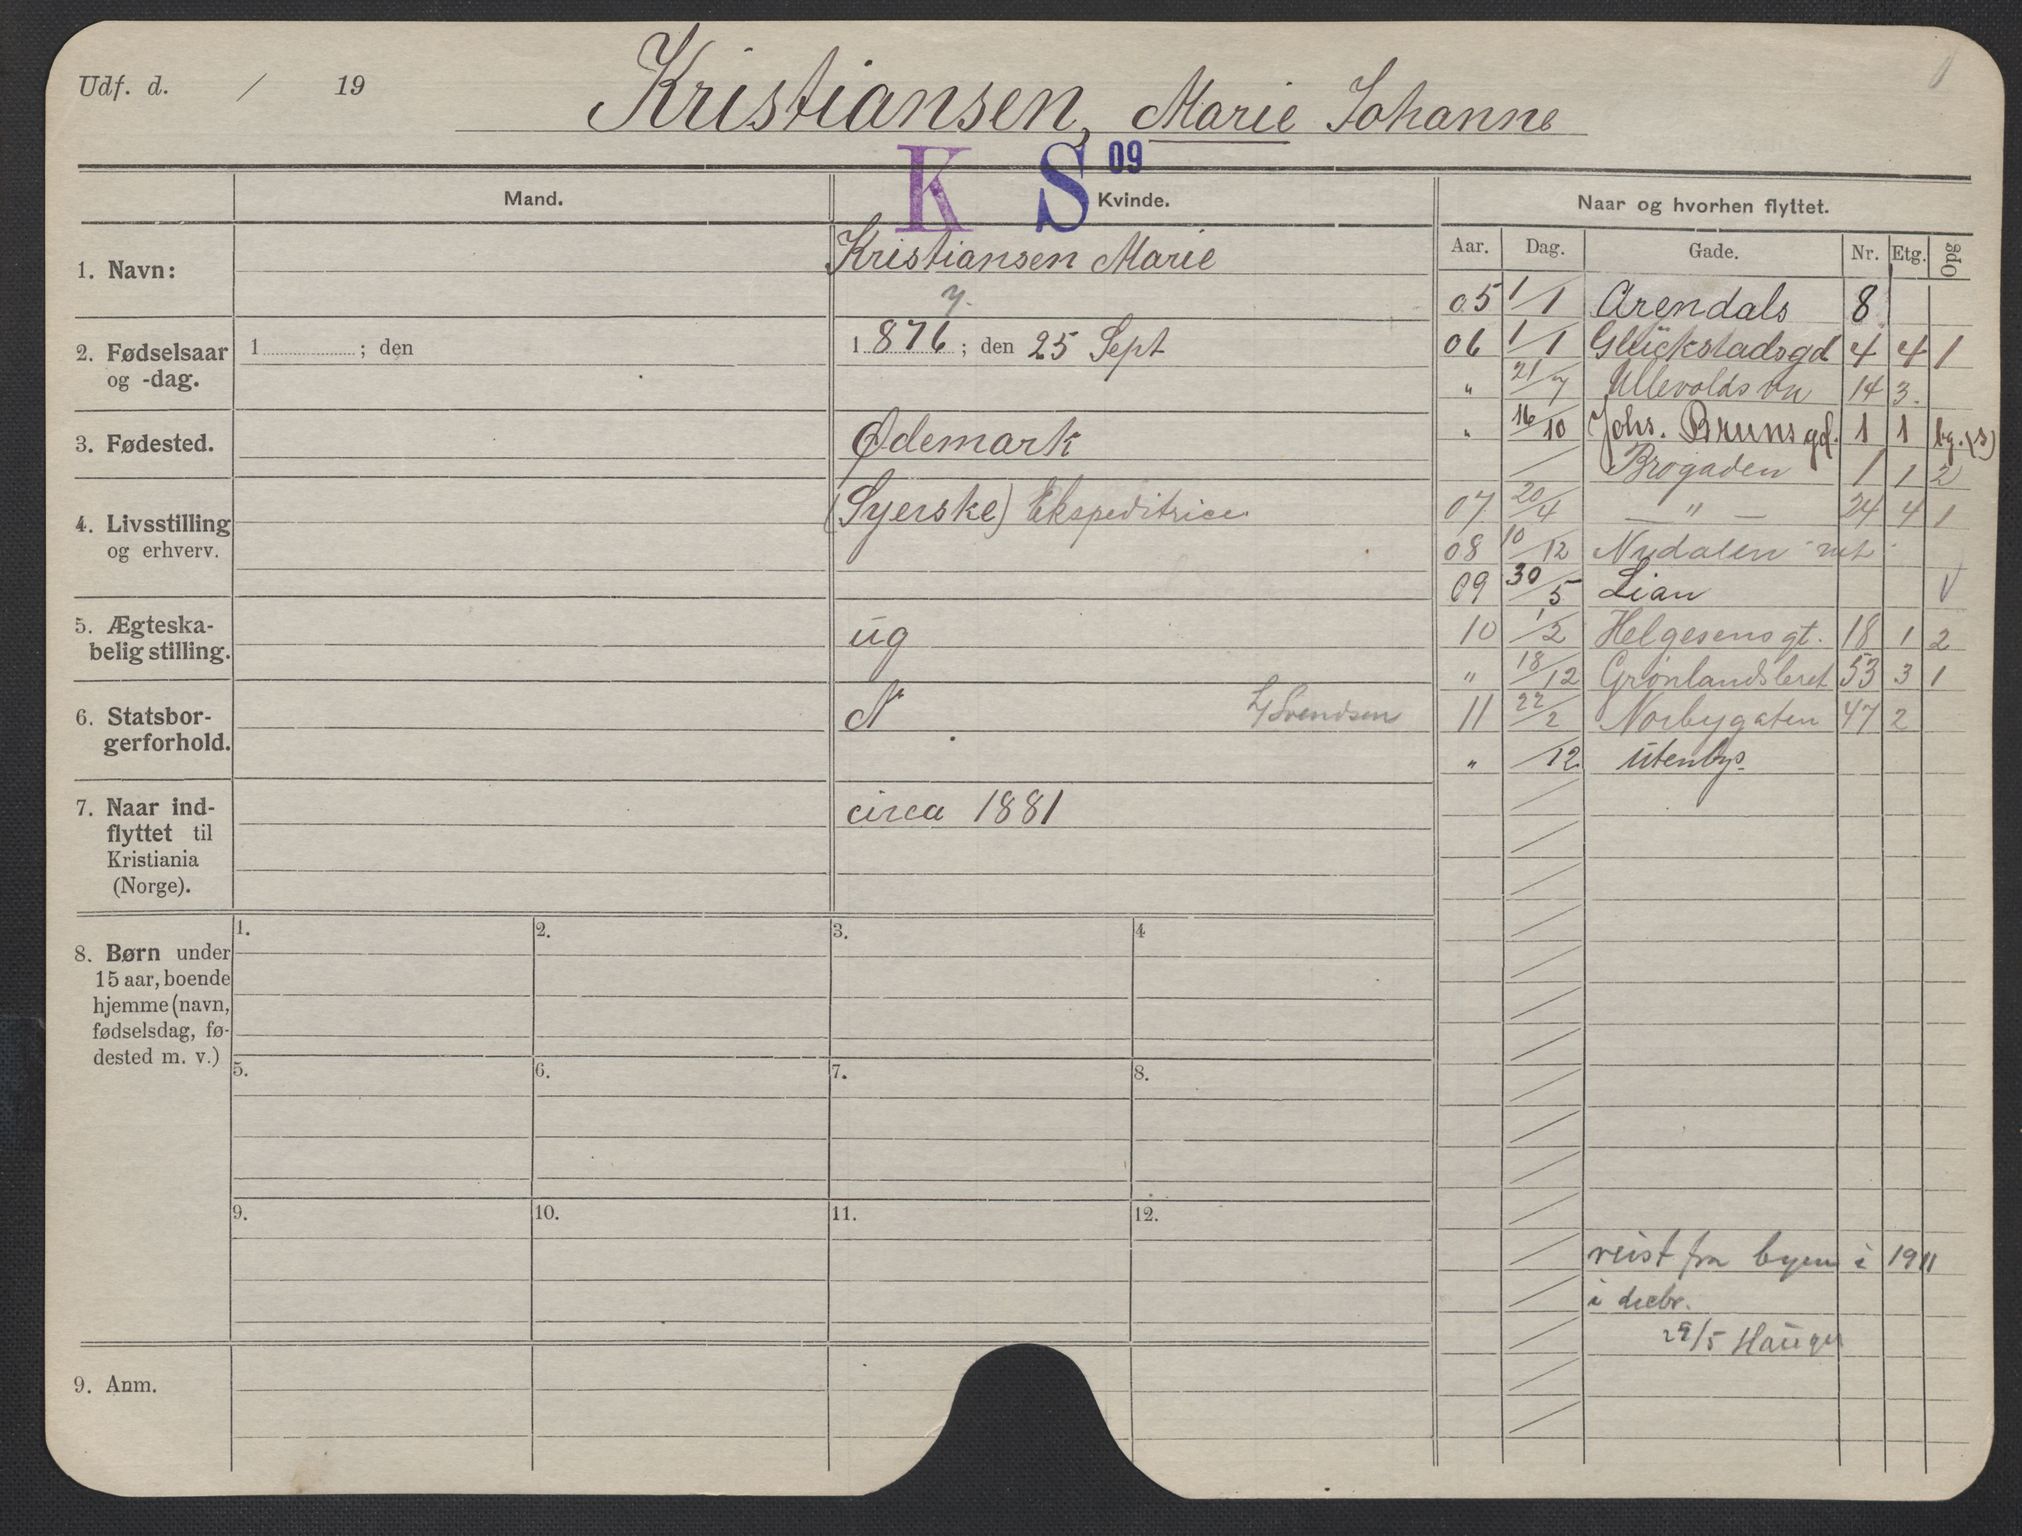 Udf. d. / 19 Kristiansen, Marie Johanne
K S 09
Mand. Kvinde. Naar og hvorhen flyttet.
Aar. Dag. Gade. Nr. Etg. Opg
1. Navn: Kristiansen Marie
05 1/1 Arendals 8
2. Fødselsaar og -dag. 1 ; den 1876 ; den 25 Sept
06 1/1 Glückstadsgd 4 4 1
" 21/7 Ullevoldsvn 14 3.
3. Fødested. Ødemark
" 16/10 Johs. Brunsgd. 1 1 bg. (s)
/ Brogaden 1 1 2
4. Livsstilling og erhverv. (Syerske) Ekspeditrice.
07 20/4 — " — 24 4 1
08 10/12 Nydalen
09 30/5 Lian
5. Ægteska-
belig stilling. ug
10 1/2 Helgesensgt. 18 1 2
" 18/12 Grønlandsleret 53 3 1
6. Statsbor-
gerforhold. N Svendsen
11 22/2 Norbygaten 47 2
" /12 utenbys.
7. Naar ind-
flyttet til
Kristiania
(Norge). circa 1881
8. Børn under
15 aar, boende
hjemme (navn,
fødselsdag, fø-
dested m. v.)
1. 2. 3. 4
5. 6. 7. 8.
9. 10. 11. 12.
reist fra byen i 1911
i decbr.
29/5 Hauger
9. Anm.